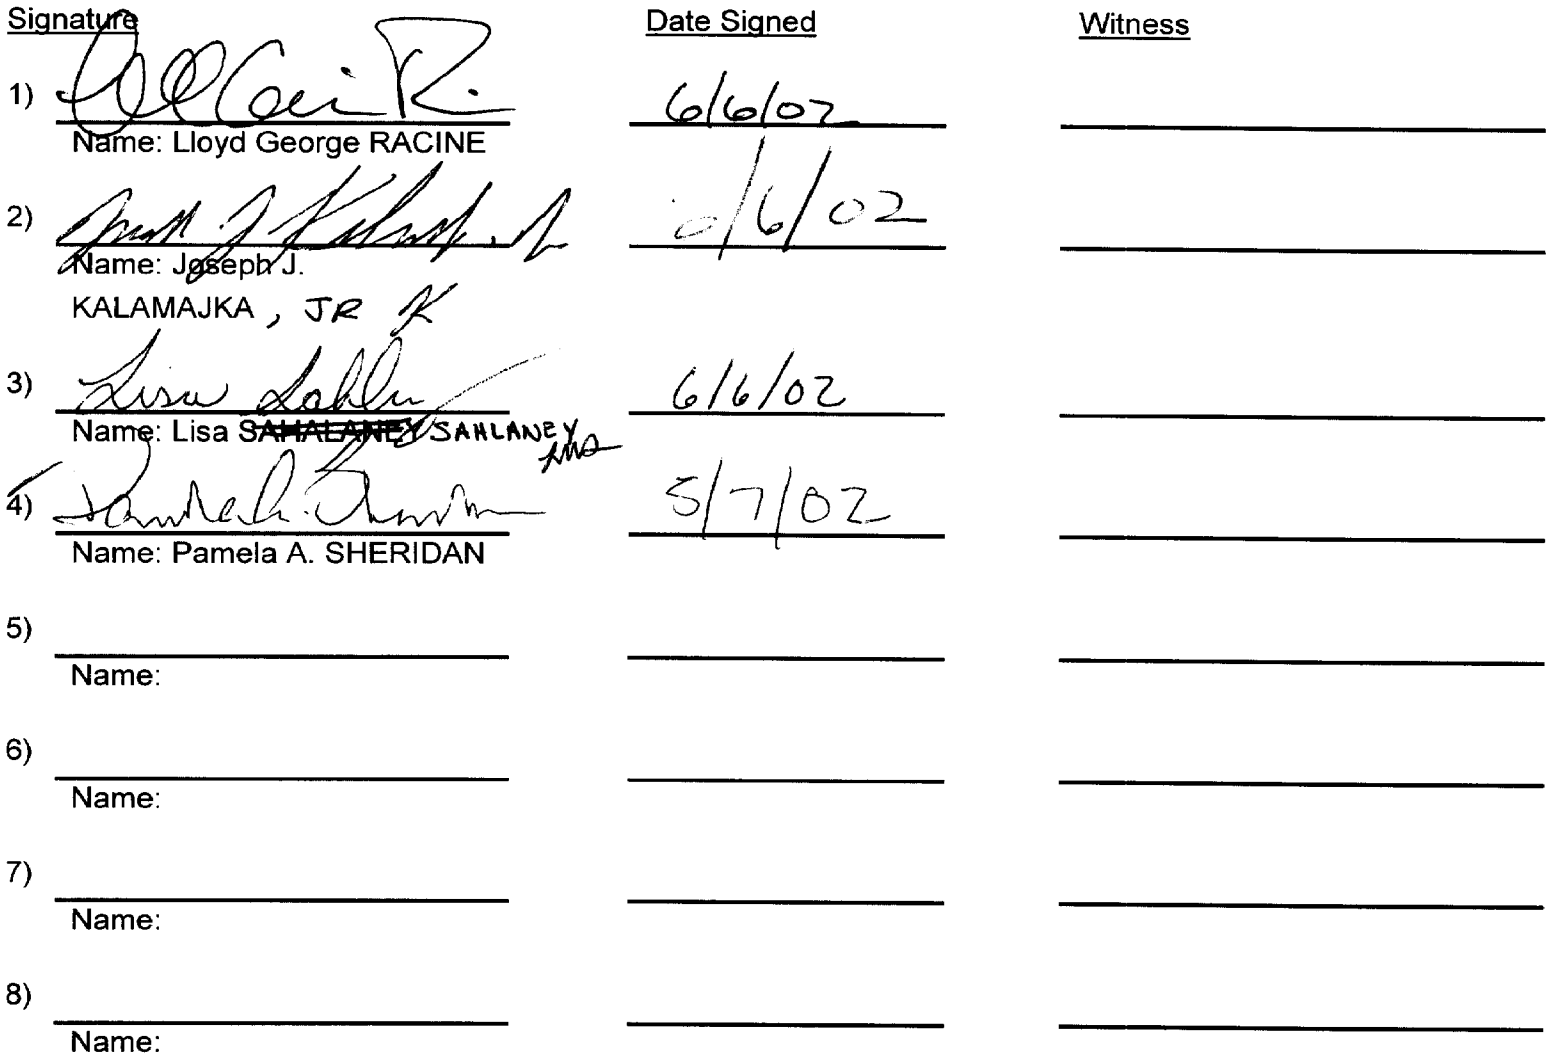 Signature Date Signed Witness
1) 6/6/02
Name: Lloyd George RACINE
2) /6/02
Name: Joseph J.
KALAMAJKA , JR
3) Lisa 6/6/02
Name: Lisa SAHALANEY SAHLANEY
4) 5/7/02
Name: Pamela A. SHERIDAN
5)
Name:
6)
Name:
7)
Name:
8)
Name: